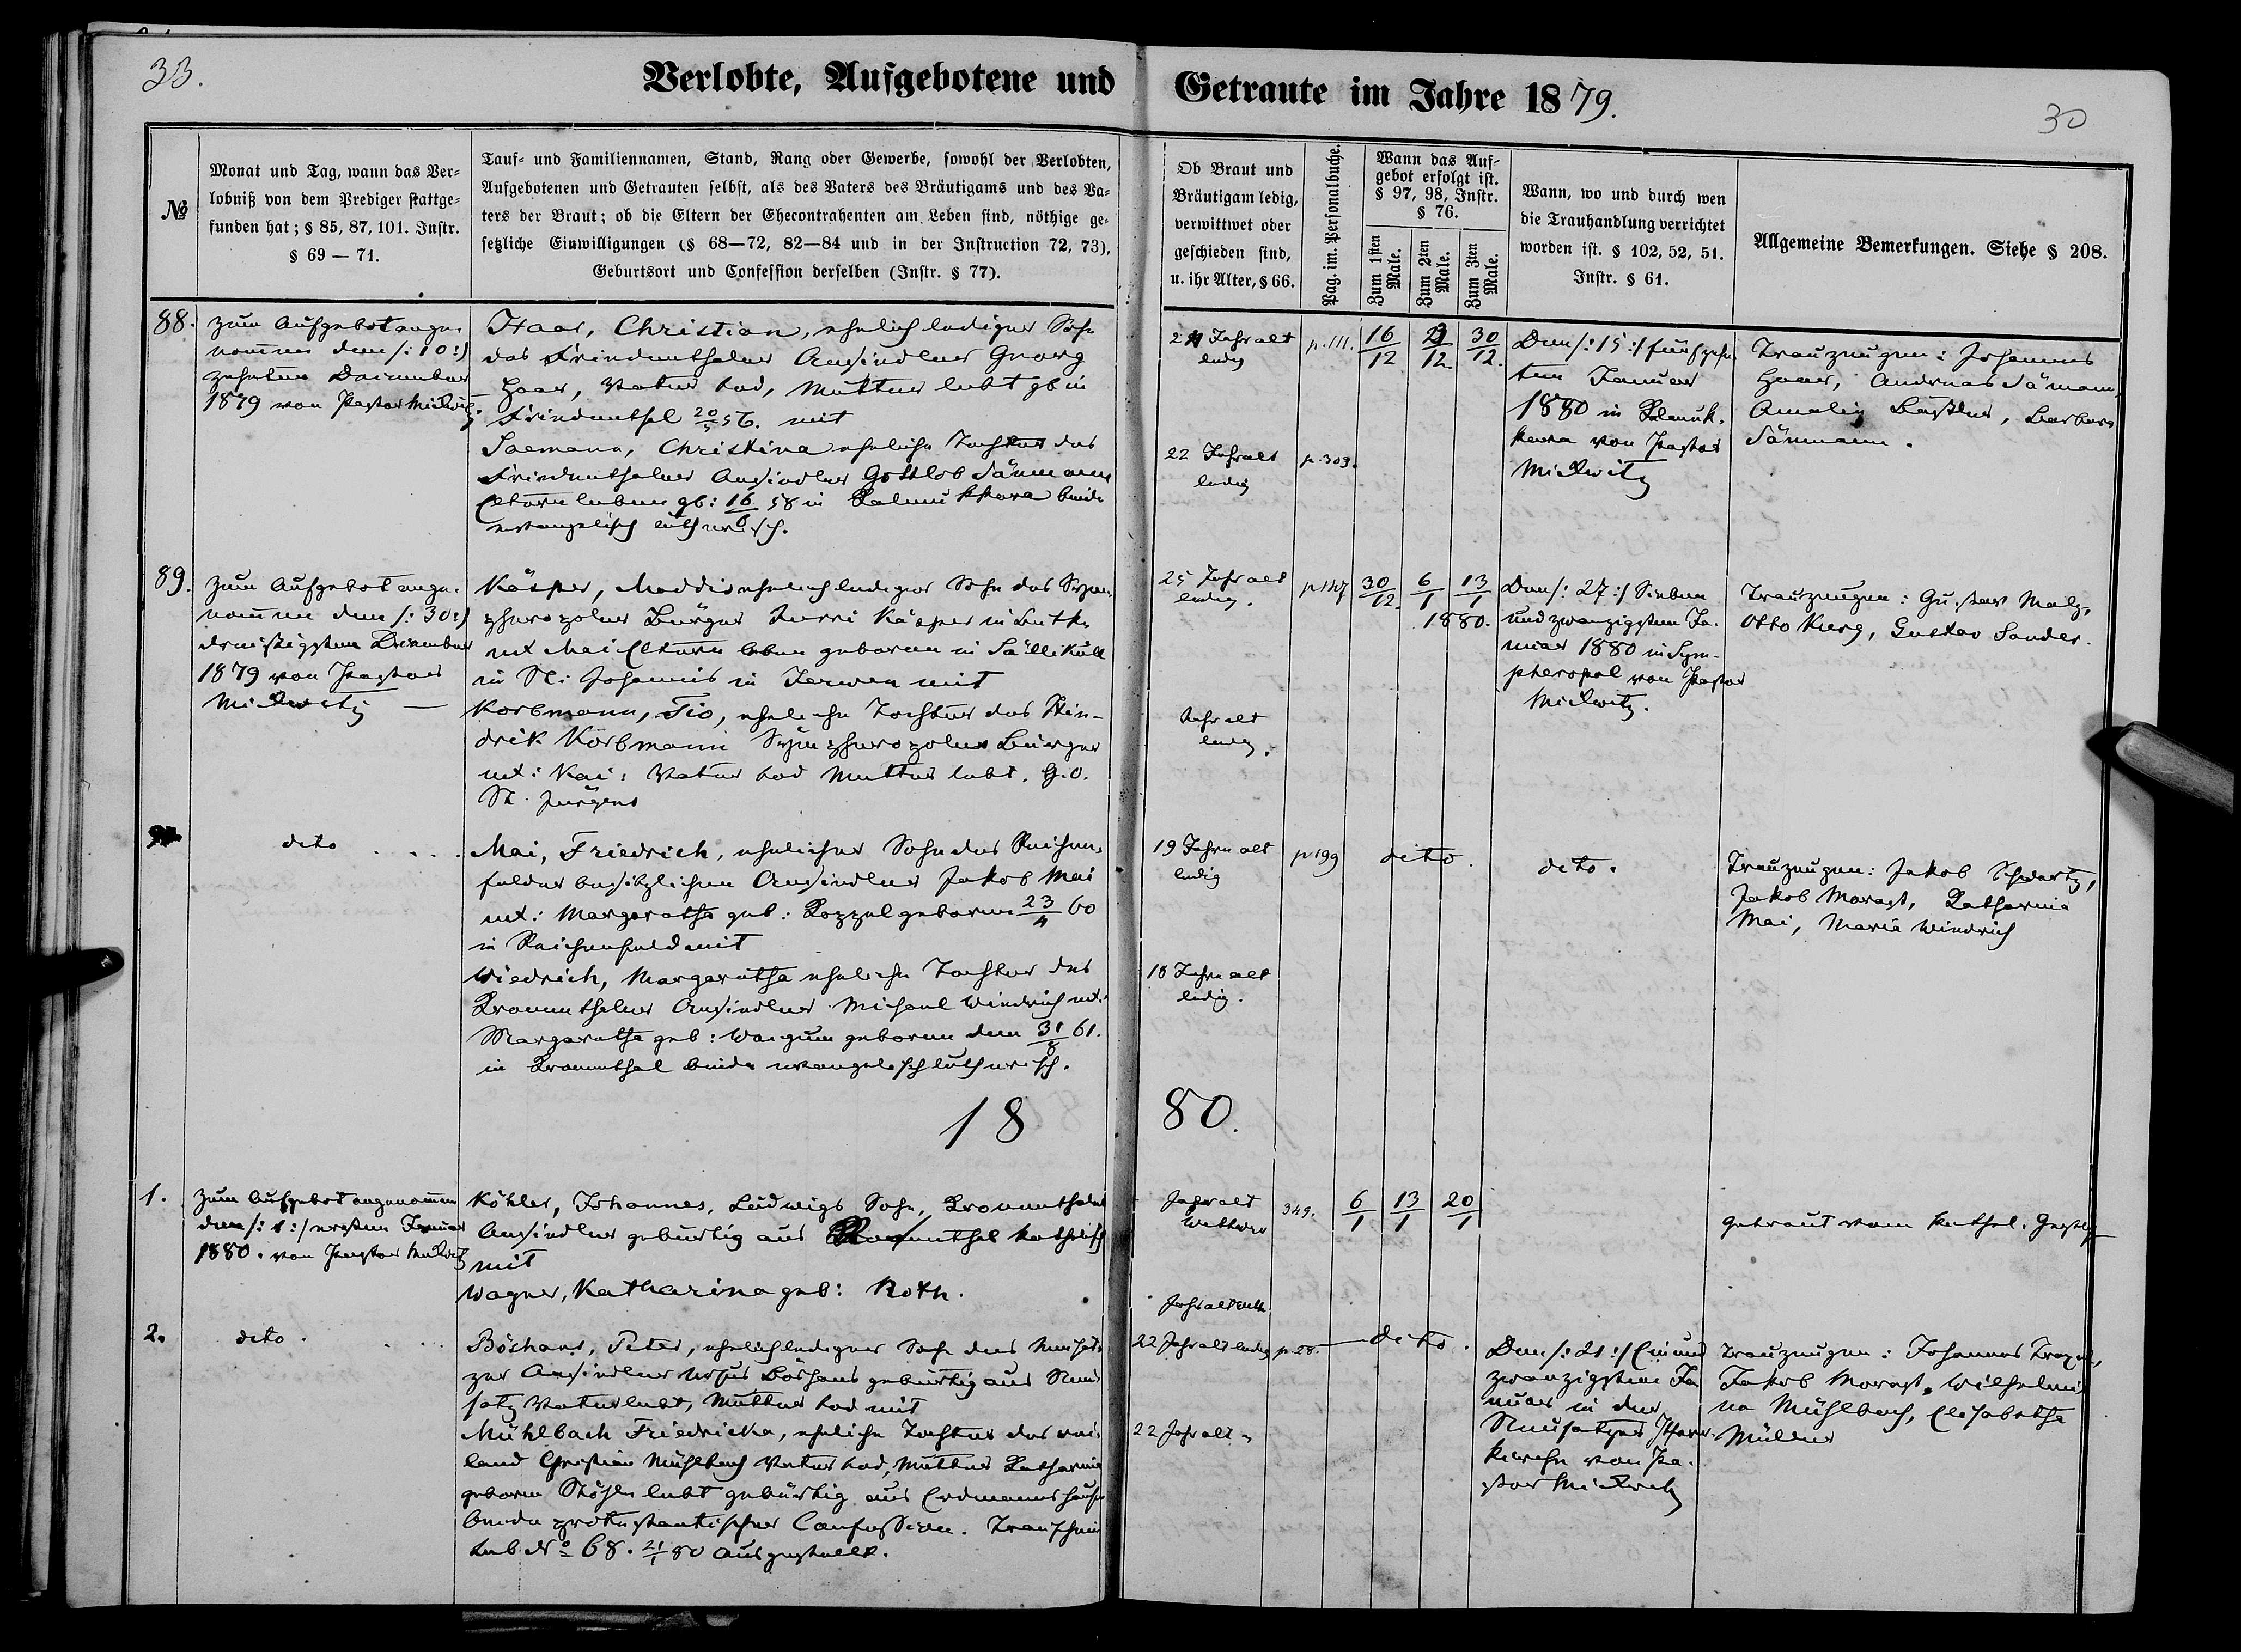 33.
Verlobte, Aufgebotene und Getraute im Jahre 1879.
30
№
Monat und Tag, wann das Ver-
lobniß von dem Prediger stattge-
funden hat; § 85, 87, 101. Instr.
§ 69 — 71.
Tauf- und Familiennamen, Stand, Rang oder Gewerbe, sowohl der Verlobten,
Aufgebotenen und Getrauten selbst, als des Vaters des Bräutigams und des Va-
ters der Braut; ob die Eltern der Ehecontrahenten am Leben sind, nöthige ge-
setzliche Einwilligungen (§ 68—72, 82—84 und in der Instruction 72, 73),
Geburtsort und Confession derselben (Instr. § 77).
Ob Braut und
Bräutigam ledig,
verwittwet oder
geschieden sind,
u. ihr Alter, § 66.
Pag. im. Personalbuche.
Wann das Auf-
gebot erfolgt ist.
§ 97, 98, Instr.
§ 76.
Zum 1sten Male.
Zum 2ten Male.
Zum 3ten Male.
Wann, wo und durch wen
die Trauhandlung verrichtet
worden ist. § 102, 52, 51.
Instr. § 61.
Allgemeine Bemerkungen. Siehe § 208.
88.
zum Aufgebot ange-
nommen den /: 10 :/
zehnten Dezember
1879 von Pastor Mickwitz
Haas, Christian, ehelich lediger Sohn
des Friedenthaler Ansiedlers Georg
Haas, Vater tod, Mutter lebt gb in
Friedenthal 20/5 56. mit
Saemann, Christina eheliche Tochter des
Friedenthaler Ansiedlers Gottlob Sämann
Eltern leben gb: 16/6 58 in Kalmukkara beide
evangelisch lutherisch.
Jahr alt
ledig
p. 111.
16/12
30/12.
22 Jahr alt
ledig
p. 303.
Den /: 15 :/ fünfzehn
ten Januar
1880 in Kalmuk-
kara von Pastor
Mickwitz
Trauzeugen: Johannes
Haas, Andreas Sämann,
Amalie, Barbara
Sämann.
89.
zum Aufgebot ange-
nommen den /: 30 :/
dreißigsten Dezember
1879 von Pastor
Mickwitz —
Käsper, Maddis ehelich lediger Sohn des Sym-
pheropoler Bürger Jurri Käsper
ux Mai Eltern leben geboren in Sällikull
in St: Johannis in Jerwen mit
Korbmann, Tio, eheliche Tochter des Hin-
drik Korbmann Sympheropoler Bürger
ux: Kai: Vater tod Mutter lebt. G.O.
St. Jürgens
25 Jahr alt
ledig.
p 147
30/12.
6/1
13/1
1880.
Jahr alt
ledig.
Den /: 27 :/ Sieben
und zwanzigsten Ja-
nuar 1880 in Sym-
pheropol von Pastor
Mickwitz.
Trauzeugen: Gustav Malz,
Otto Kurg, Gustav Sander.
dito . . . .
Mai, Friedrich, ehelicher Sohn des Reichen-
felder besitzlichen Ansiedlers Jakob Mai
ux: Margaretha geb: Koppel geboren 23/4 60
in Reichenfeld mit
Wiedrich, Margaretha eheliche Tochter des
Kronenthaler Ansiedlers Michael Wiedrich ux:
Margaretha geb: geboren den 31/8 61.
in Kronenthal beide evangelisch lutherisch.
19 Jahr alt
ledig
p 199
dito.
dito.
Trauzeugen: Jakob Schwartz,
Jakob Morast, Katharina
Mai, Maria Wiedrich
18 Jahr alt
ledig.
18 80.
1.
zum Aufgebot angenommen
den /: 1 :/ ersten Januar
1880. von Pastor Mickwitz
Köhler, Johannes, Ludwigs Sohn, Kronenthaler
Ansiedler gebürtig aus Kronenthal katholisch
mit
Wagner, Katharina geb: Roth.
Jahr alt
Wittwer
349.
6/1
13/1
20/1
Getraut vom kathol. Geistl.
Jahr alt
2.
dito . . .
Böshans, Peter, ehelich lediger Sohn des Neusat-
zer Ansiedlers Böshans gebürtig aus Neu-
satz Vater lebt, Mutter tod mit
Mühlbach Friedricka, eheliche Tochter des wei-
land Christian Mühlbach Vater tod, Mutter Katharina
geboren lebt gebürtig aus Erdmannshausen
beide protestantischer Confession. Trauschein
sub № 68. 21/1 80 ausgestellt.
22 Jahr alt ledig
p. 28.
dito.
22 Jahr alt "
Den /: 21 :/ Ein und
zwanzigsten Ja-
nuar in der
Neusatzer Pfarr-
kirche von Pa-
stor Mickwitz
Trauzeugen: Johannes
Jakob Morast, Wilhelmi-
na Mühlbach, Elisabetha
Müller